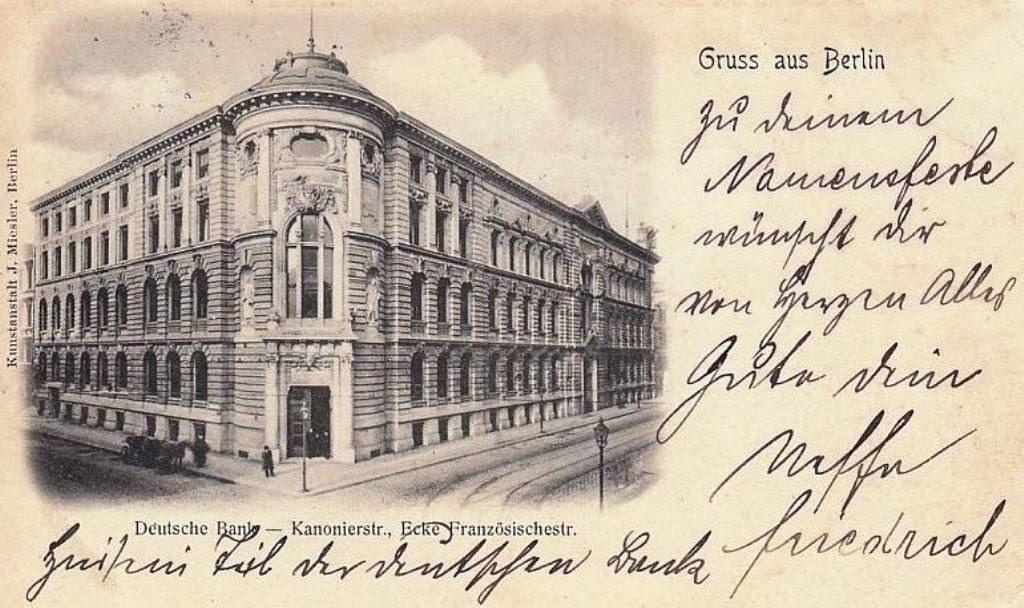 Gruss aus Berlin
Zu deinem
Namensfeste
wünscht dir
von Herzen Alles
Gute dein
Neffe
Friedrich
Kunstanstalt J. Miesler, Berlin
Deutsche Bank — Kanonierstr., Ecke Französischestr.
Teil der deutschen Bank